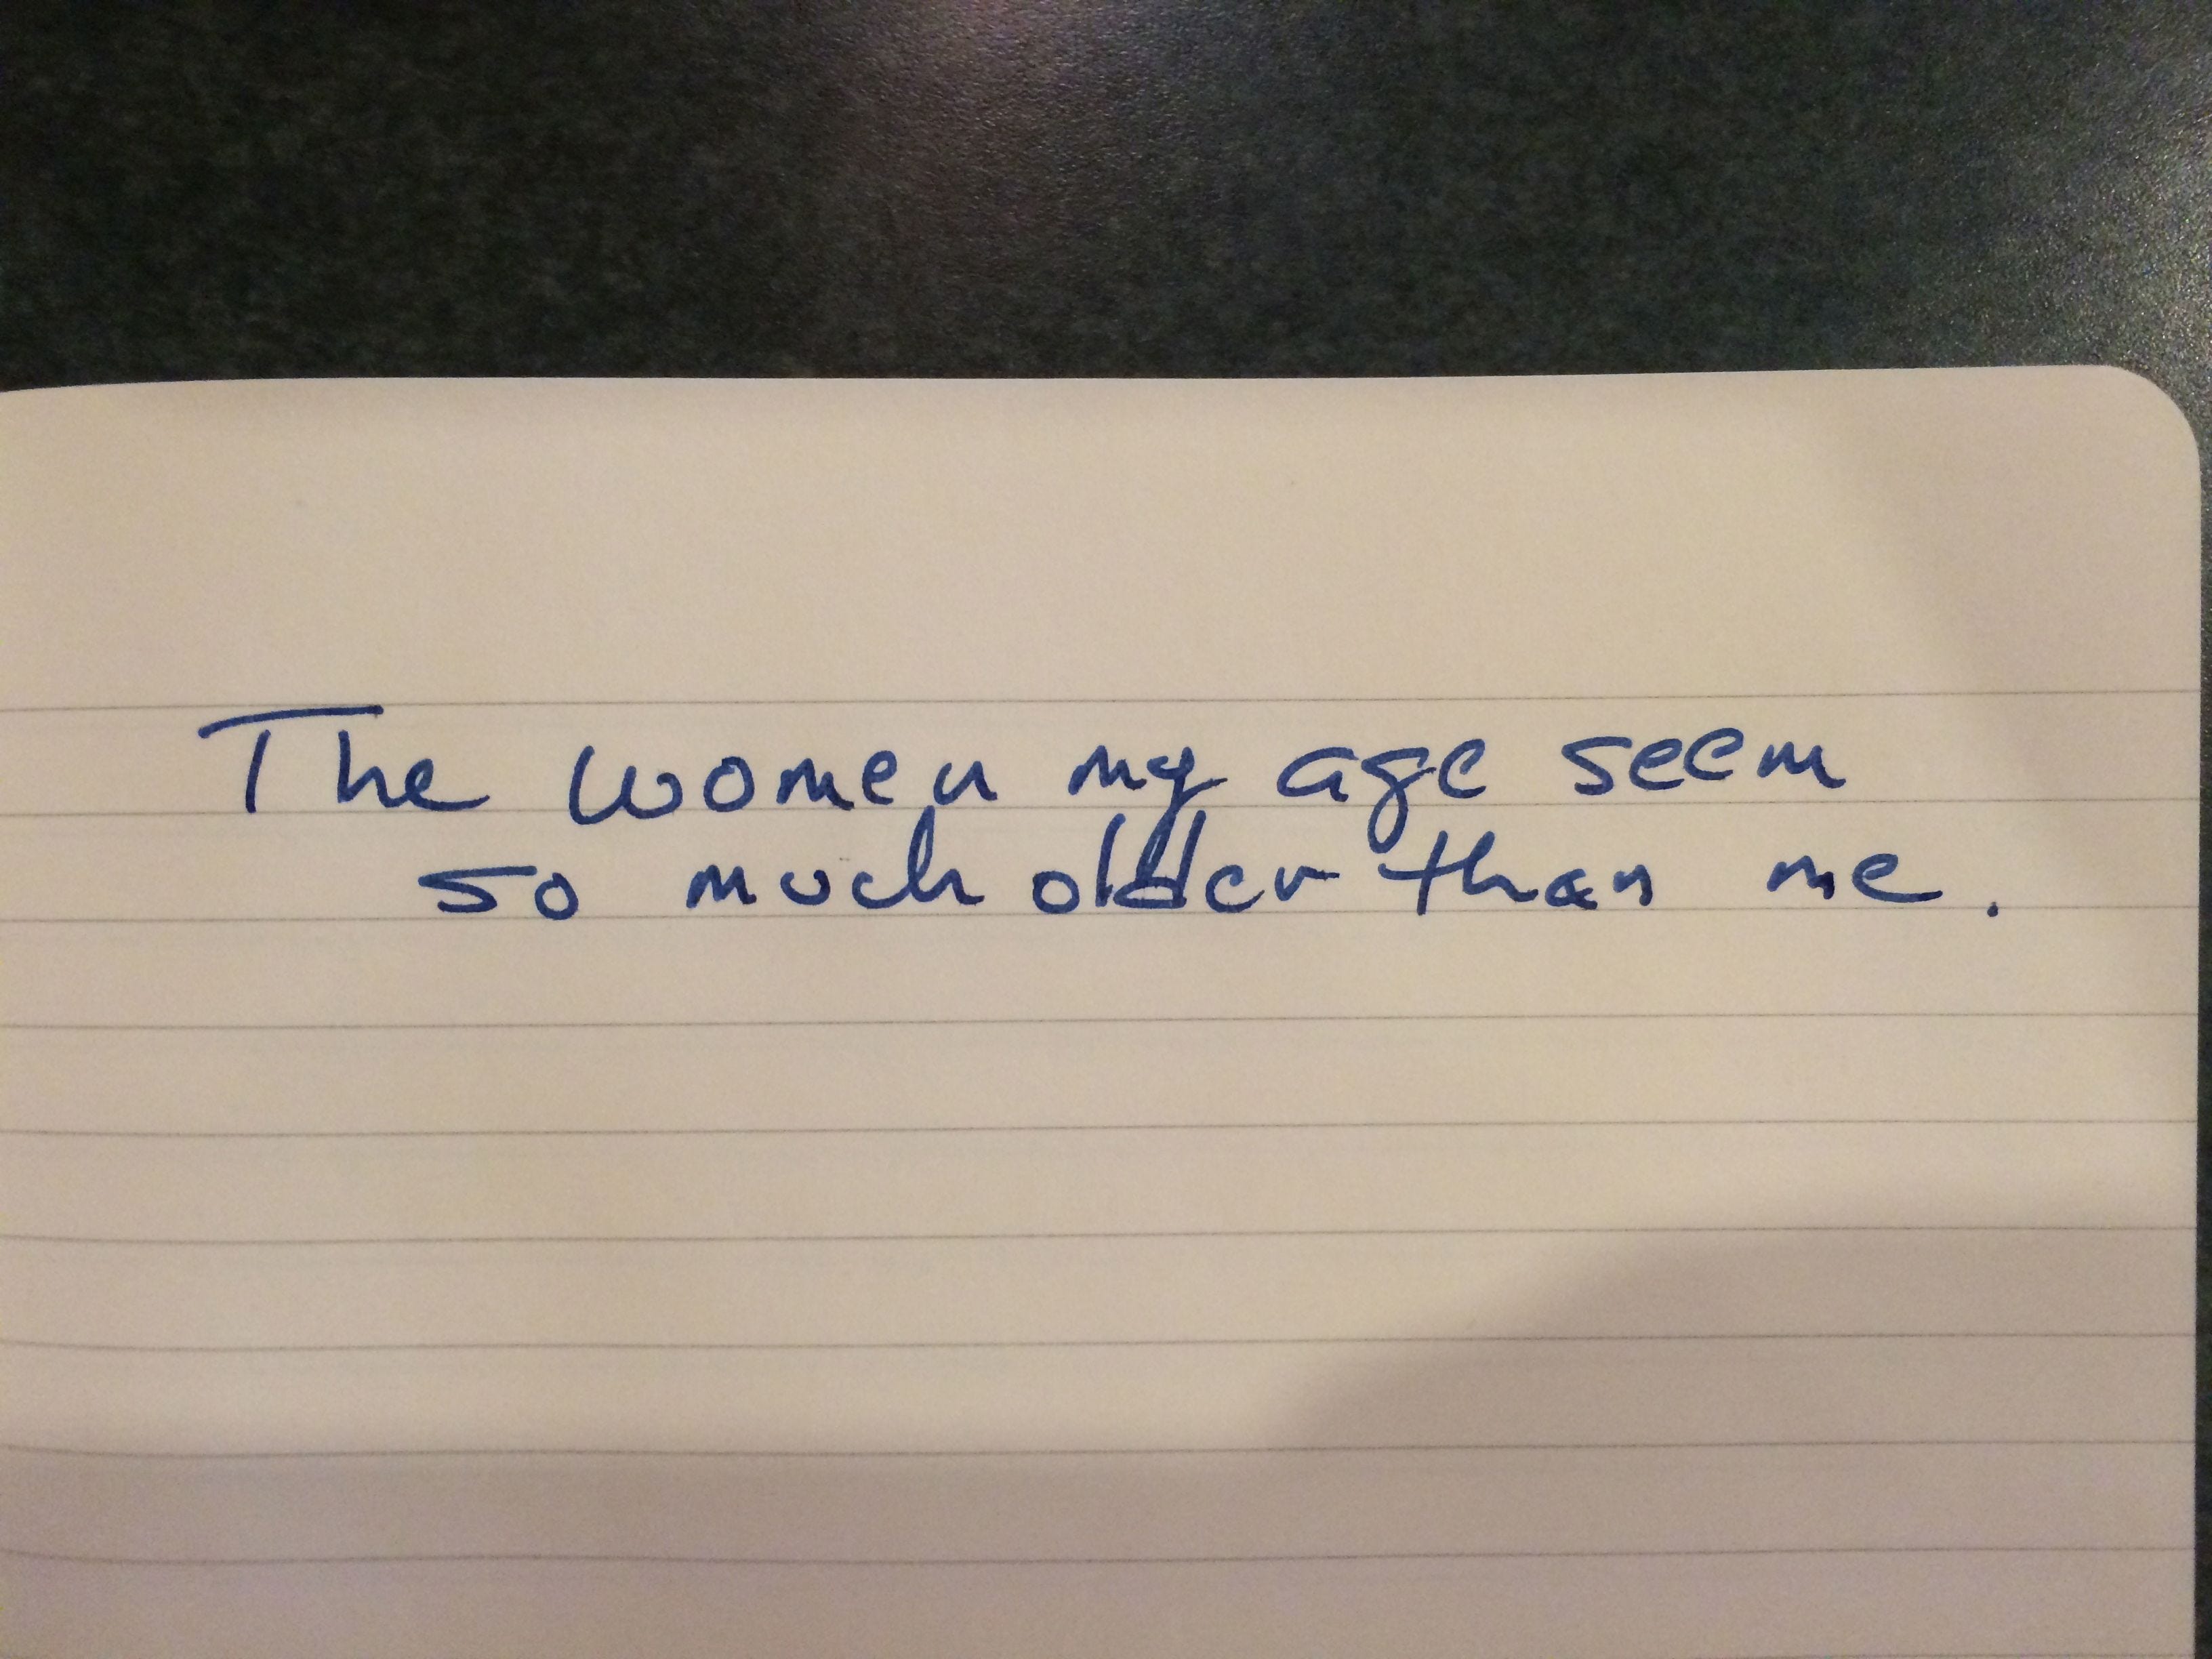 The women my age seem
so much older than me.